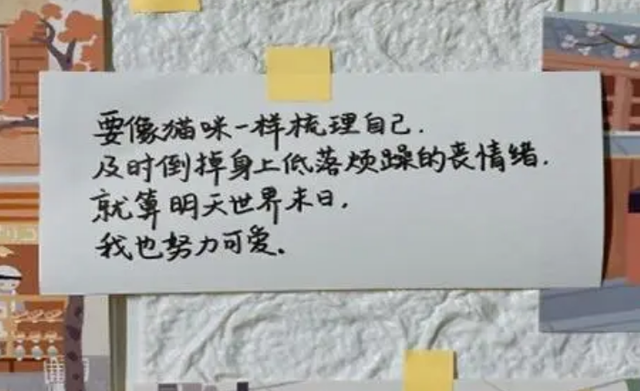 要像猫咪一样梳理自己.
及时倒掉身上低落烦躁的丧情绪.
就算明天世界末日.
我也努力可爱。